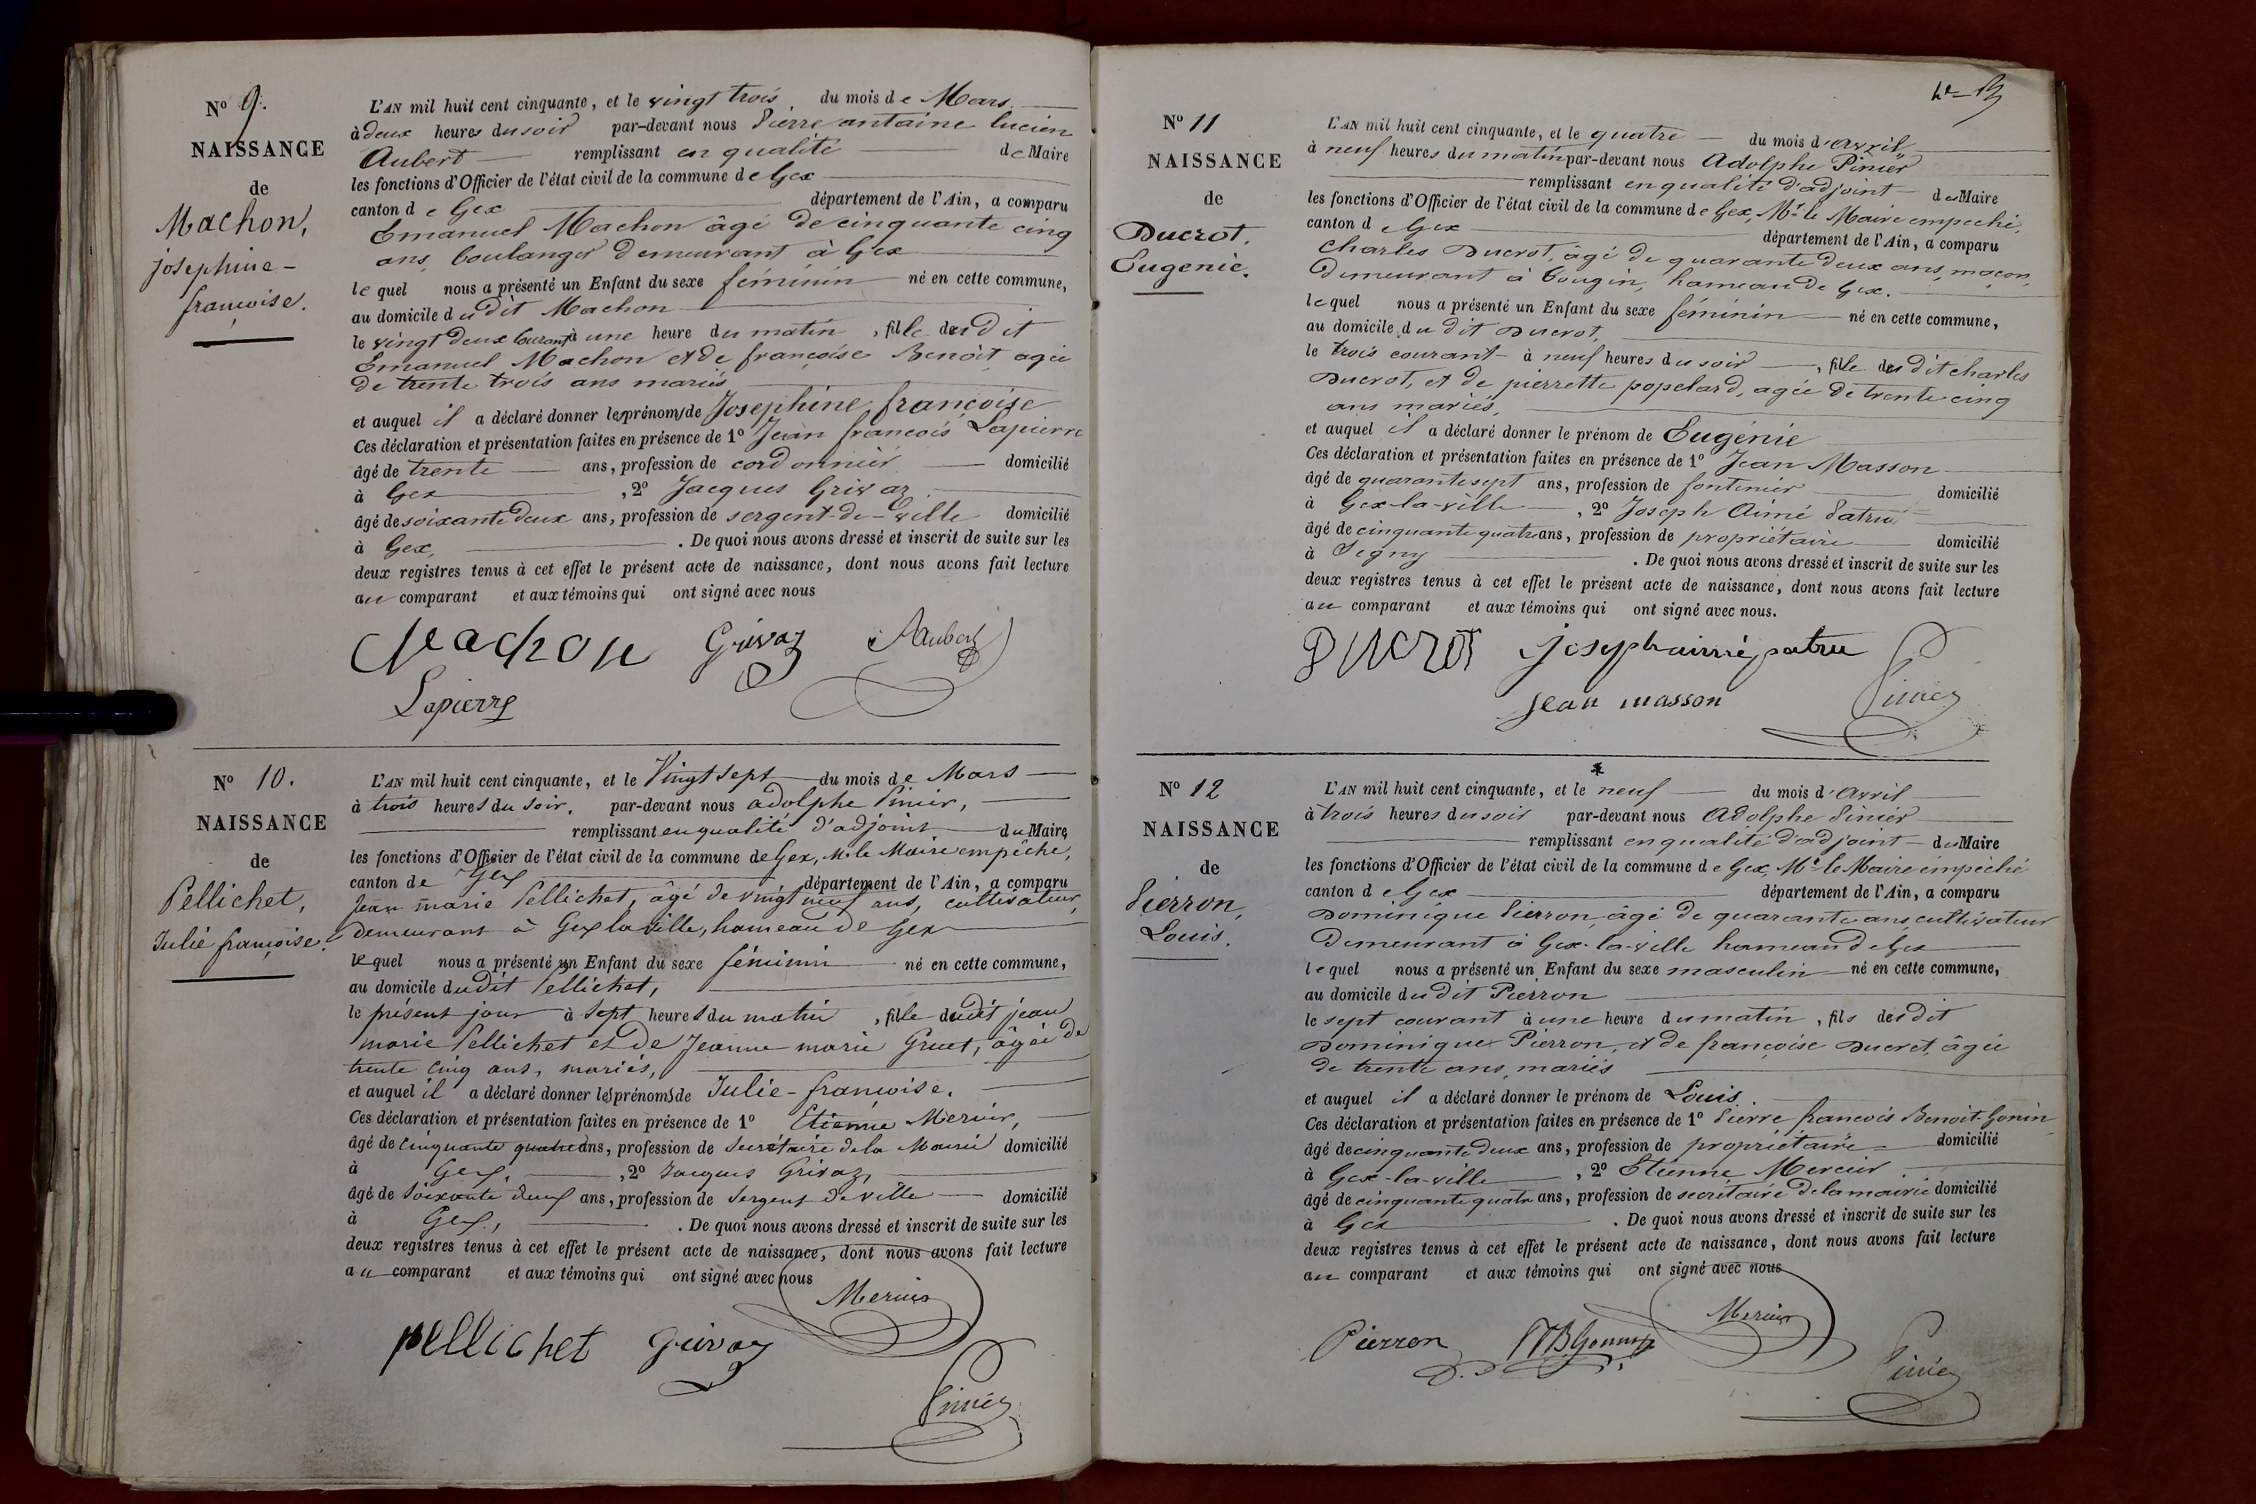 N° 9.
NAISSANCE
de
Machon,
Josephine-
françoise.
L'AN mil huit cent cinquante, et le vingt trois, du mois de Mars
à deux heures du soir par-devant nous Pierre antoine lucien
Aubert remplissant en qualité de Maire
les fonctions d'Officier de l'état civil de la commune de Gex
canton de Gex département de l'Ain, a comparu
Emanuel Machon âgé de cinquante cinq
ans, boulanger demeurant à Gex
lequel nous a présenté un Enfant du sexe féminin né en cette commune,
au domicile dudit Machon
le vingt deux courant à une heure du matin, fille dudit
Emanuel Machon et de françoise Benoit agée
de trente trois ans mariés
et auquel il a déclaré donner les prénoms de Josephine françoise
Ces déclaration et présentation faites en présence de 1° Jean françois Lapierre
âgé de trente ans, profession de cordonnier domicilié
à Gex, 2° Jacques Grivaz
âgé de soixante deux ans, profession de sergent-de-ville domicilié
à Gex, . De quoi nous avons dressé et inscrit de suite sur les
deux registres tenus à cet effet le présent acte de naissance, dont nous avons fait lecture
au comparant et aux témoins qui ont signé avec nous
Machon Grivaz Aubert
Lapierre
N° 10.
NAISSANCE
de
Pellichet,
Julie françoise.
L'AN mil huit cent cinquante, et le Vingt sept du mois de Mars
à trois heures du soir, par-devant nous adolphe Pinier,
remplissant en qualité d'adjoint du Maire
les fonctions d'Officier de l'état civil de la commune de Gex, Mr le Maire empêché,
canton de Gex département de l'Ain, a comparu
Jean marie Pellichet, âgé de vingt neuf ans, cultivateur,
demeurant à Gex la ville, hameau de Gex
lequel nous a présenté un Enfant du sexe féminin né en cette commune,
au domicile dudit Pellichet,
le présent jour à sept heures du matin, fille dudit jean
marie Pellichet et de Jeanne marie Gruet, âgée de
trente cinq ans, mariés,
et auquel il a déclaré donner les prénoms de Julie-françoise.
Ces déclaration et présentation faites en présence de 1° Etienne Mercier,
âgé de cinquante quatre ans, profession de Secrétaire de la Mairie domicilié
à Gex, , 2° Jacques Grivaz,
âgé de soixante deux ans, profession de Sergent de ville domicilié
à Gex, . De quoi nous avons dressé et inscrit de suite sur les
deux registres tenus à cet effet le présent acte de naissance, dont nous avons fait lecture
au comparant et aux témoins qui ont signé avec nous
Mercier
pellichet Grivaz
Pinier
N° 11
NAISSANCE
de
Ducrot,
Eugenie.
L'AN mil huit cent cinquante, et le quatre du mois d'Avril
à neuf heures du matin par-devant nous Adolphe Pinier
remplissant en qualité d'adjoint du Maire
les fonctions d'Officier de l'état civil de la commune de Gex, Mr le Maire empeché,
canton de Gex département de l'Ain, a comparu
Charles Ducrot, âgé de quarante deux ans, maçon,
demeurant à tougin, hameau de Gex.
lequel nous a présenté un Enfant du sexe féminin né en cette commune,
au domicile dudit Ducrot,
le trois courant à neuf heures du soir, fille dudit charles
Ducrot, et de pierrette popelard, agée de trente cinq
ans mariés,
et auquel il a déclaré donner le prénom de Eugénie
Ces déclaration et présentation faites en présence de 1° Jean Masson
âgé de quarante sept ans, profession de fontenier domicilié
à Gex-la-ville, 2° Joseph Aimé Patru
âgé de cinquante quatre ans, profession de propriétaire domicilié
à Segny . De quoi nous avons dressé et inscrit de suite sur les
deux registres tenus à cet effet le présent acte de naissance, dont nous avons fait lecture
au comparant et aux témoins qui ont signé avec nous.
Ducrot joseph aimé patru
jean masson Pinier
N° 12
NAISSANCE
de
Pierron,
Louis.
L'AN mil huit cent cinquante, et le neuf du mois d'Avril
à trois heures du soir par-devant nous Adolphe Pinier
remplissant en qualité d'adjoint du Maire
les fonctions d'Officier de l'état civil de la commune de Gex, Mr le Maire empêché
canton de Gex département de l'Ain, a comparu
Dominique Pierron, âgé de quarante ans, cultivateur
Demeurant à Gex-la-ville hameau de Gex
lequel nous a présenté un Enfant du sexe masculin né en cette commune,
au domicile dudit Pierron
le sept courant à une heure du matin, fils dudit
Dominique Pierron, et de françoise Ducret, âgée
de trente ans, mariés
et auquel il a déclaré donner le prénom de Louis.
Ces déclaration et présentation faites en présence de 1° Pierre françois Benoit Gonin
âgé de cinquante deux ans, profession de propriétaire domicilié
à Gex-la-ville, 2° Etienne Mercier.
âgé de cinquante quatre ans, profession de secrétaire de la mairie domicilié
à Gex . De quoi nous avons dressé et inscrit de suite sur les
deux registres tenus à cet effet le présent acte de naissance, dont nous avons fait lecture
au comparant et aux témoins qui ont signé avec nous
Mercier
Pierron Pinier